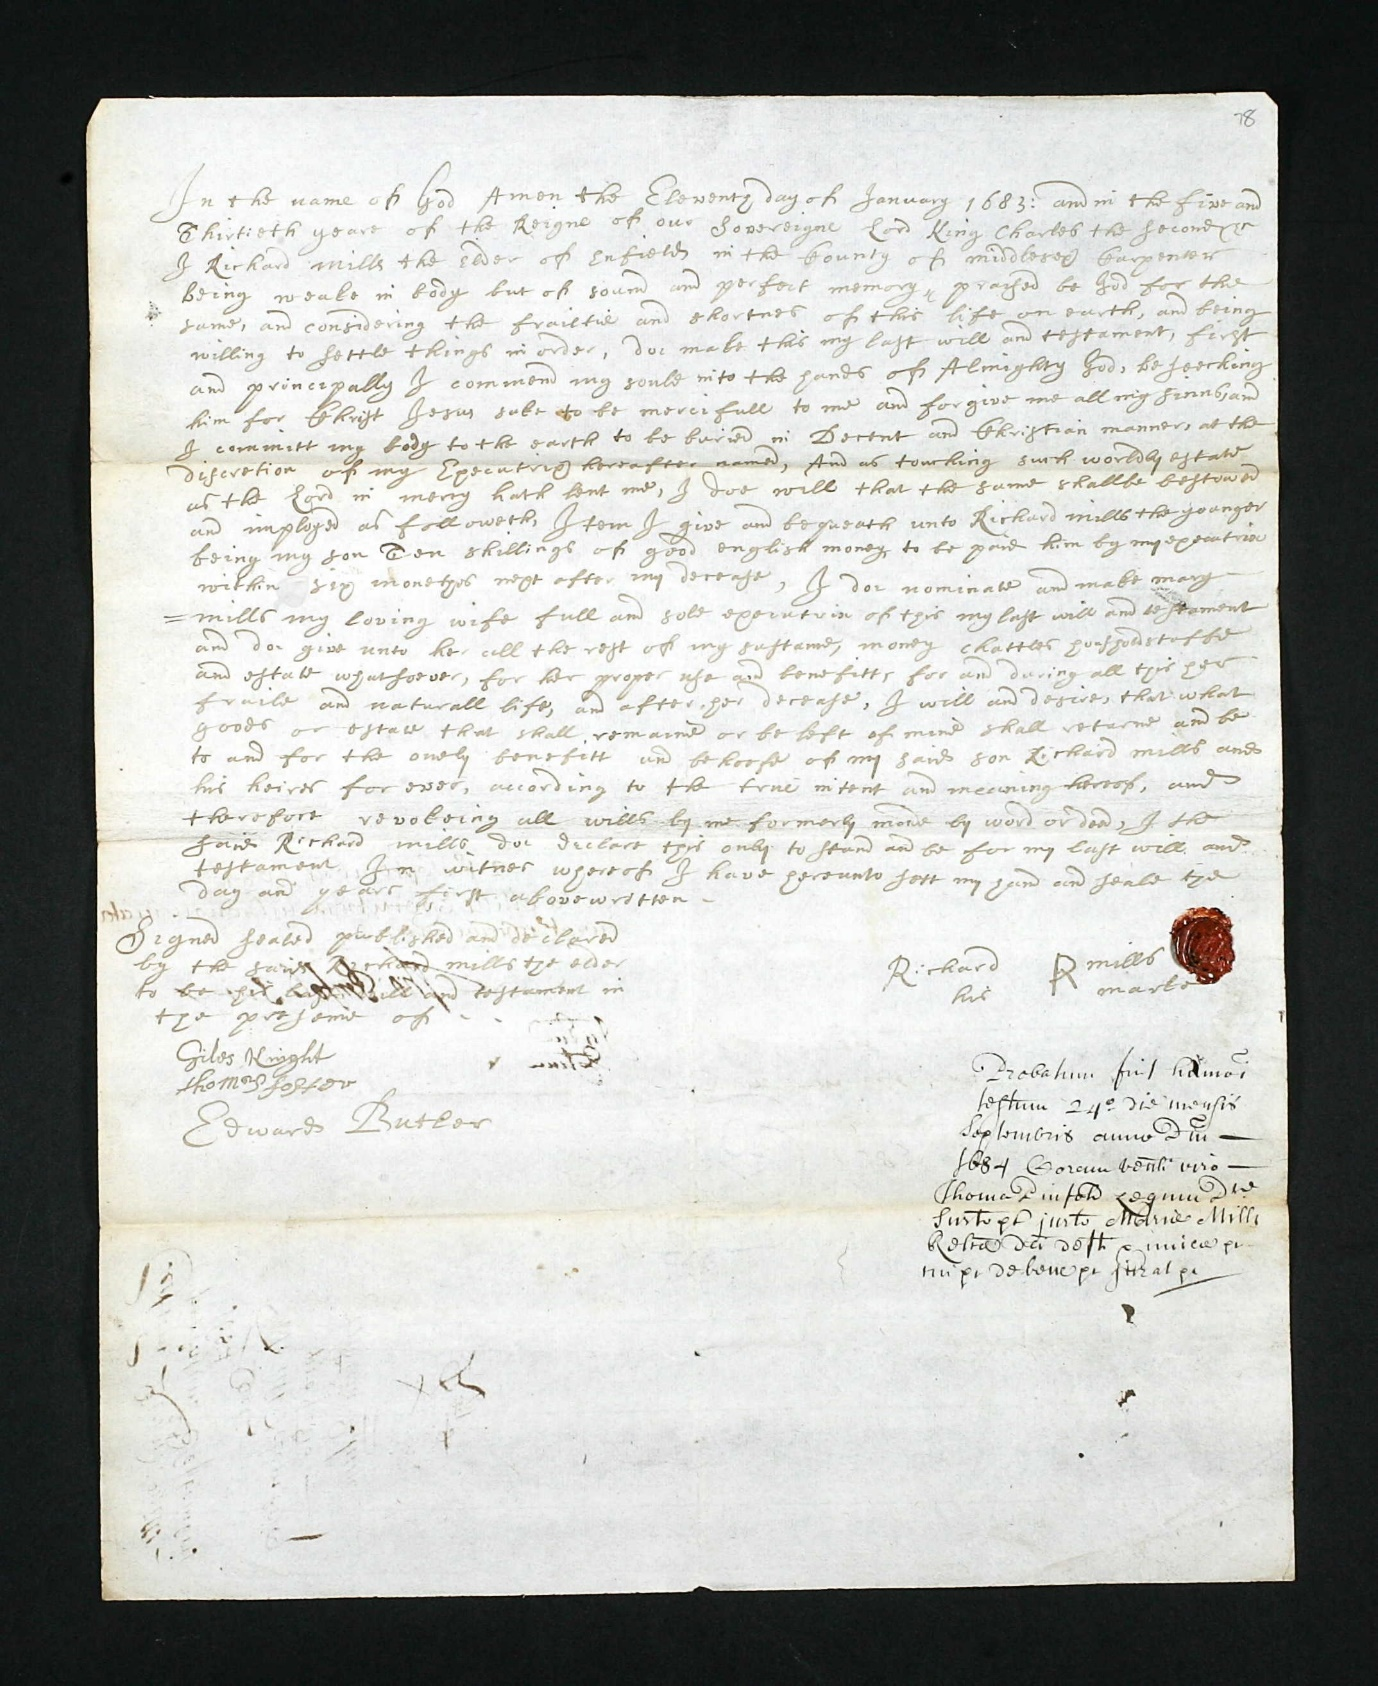 78
In the name of God Amen the Eleventh day of January 1683: and in the five and
Thirtieth yeare of the Reigne of our Sovereigne Lord King Charles the second &c
I Richard Mills the elder of Enfield in the County of middlesex Carpenter
being weake in body but of sound and perfect memory, praised be God for the
same, and considering the frailtie and shortnes of this life on earth, and being
willing to settle things in order, doe make this my last will and testament, first
and principally I commend my soule into the hands of Almighty God, beseeching
him for Christ Jesus sake to be mercifull to me and forgive me all my sinns, and
I committ my body to the earth to be buried in Decent and Christian manner, at the
discretion of my Executrix hereafter named, And as touching such worldly estate
as the Lord in mercy hath lent me, I doe will that the same shallbe bestowed
and imployed as followeth, Item I give and bequeath unto Richard mills the younger
being my son Ten shillings of good english money, to be paid him by my executrix
within six monethes next after my decease, I doe nominate and make mary
= mills my loving wife full and sole executrix of this my last will and testament
and doe give unto her all the rest of my sustame, money chattles housholdstuffe
and estate whatsoever, for her proper use and benefitt, for and during all this her
fraile and naturall life, and after her decease, I will and desire, that what
goods or estate that shall remaine or be left of mine shall returne and be
to and for the onely benefitt and behoofe of my said son Richard mills and
his heires for ever, according to the true intent and meaning hereof, and
therefore revokeing all wills by me formerly made by word or deed, I the
said Richard mills doe declare this only to stand and be for my last will and
testament In witnes whereof I have hereunto sett my hand and seale the
day and yeare first abovewritten -
Signed sealed published and declared
by the said Richard mills the elder
to be his last will and testament in
the presence of - -
Giles Knight
Thomas Foster
Edward Butler
Richard R mills
his marke
Probatum fuit hmoi
testum 24o die mensis
Septembris anno Dni
1684 Coram venli viro
Thoma Pinfold Legum Dre
Surto pt jurto Mariæ Mills
Relcæ dci deft
de bene pt jurat pt